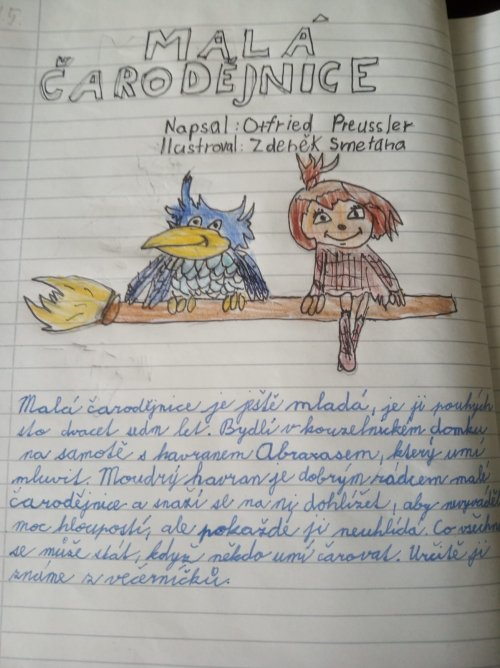 15.
MALÁ
ČARODĚJNICE
Napsal: Otfried Preussler
Ilustroval: Zdeněk Smetana
Malá čarodějnice je ještě mladá, je jí pouhých
sto dvacet sedm let. Bydlí v kouzelnickém domku
na samotě s havranem Abraxasem, který umí
mluvit. Moudrý havran je dobrým rádcem malé
čarodějnice a snaží se na ni dohlížet, aby nevyváděla
moc hloupostí, ale pokaždé ji neuhlídá. Co všechno
se může stát, když někdo umí čarovat. Určitě ji
známe z večerníčků.